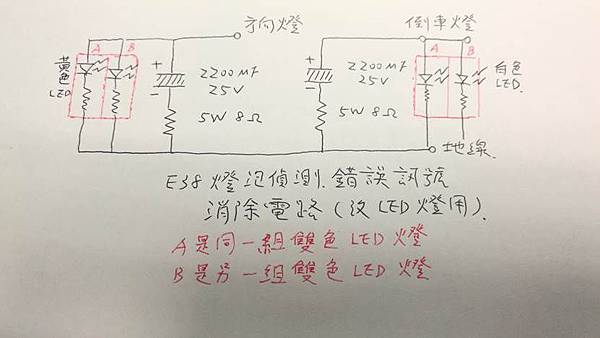 方向燈
倒車燈
A B
黃色
LED
+
-
2200MF
25V
5W 8Ω
+
-
2200MF
25V
5W 8Ω
A B
白色
LED.
地線
E38燈泡偵測.錯誤訊號
消除電路(改LED燈用).
A是同一組雙色LED燈
B是另一組雙色LED燈